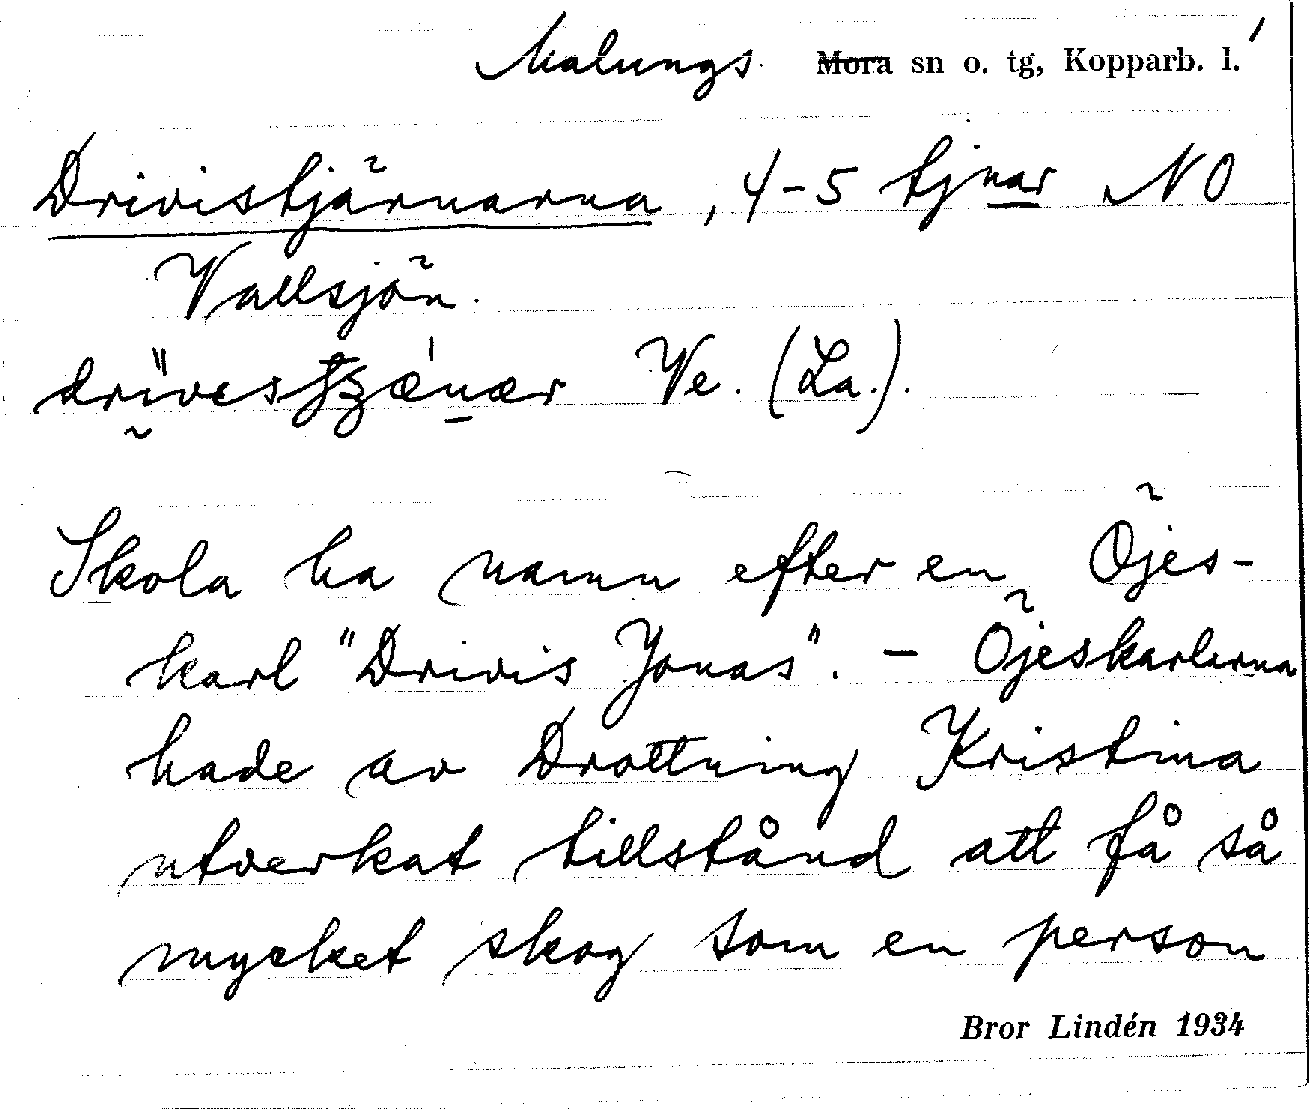 Malungs Mora sn o. tg, Kopparb. l.
Drivistjärnarna, 4-5 tjnar NO
Vallsjön.
Ve. (La.).
Skola ha namn efter en Öjes-
karl "Drivis Jonas". - Öjeskarlarna
hade av Drottning Kristina
utverkat tillstånd att få så
mycket skog som en person
Bror Lindén 1934